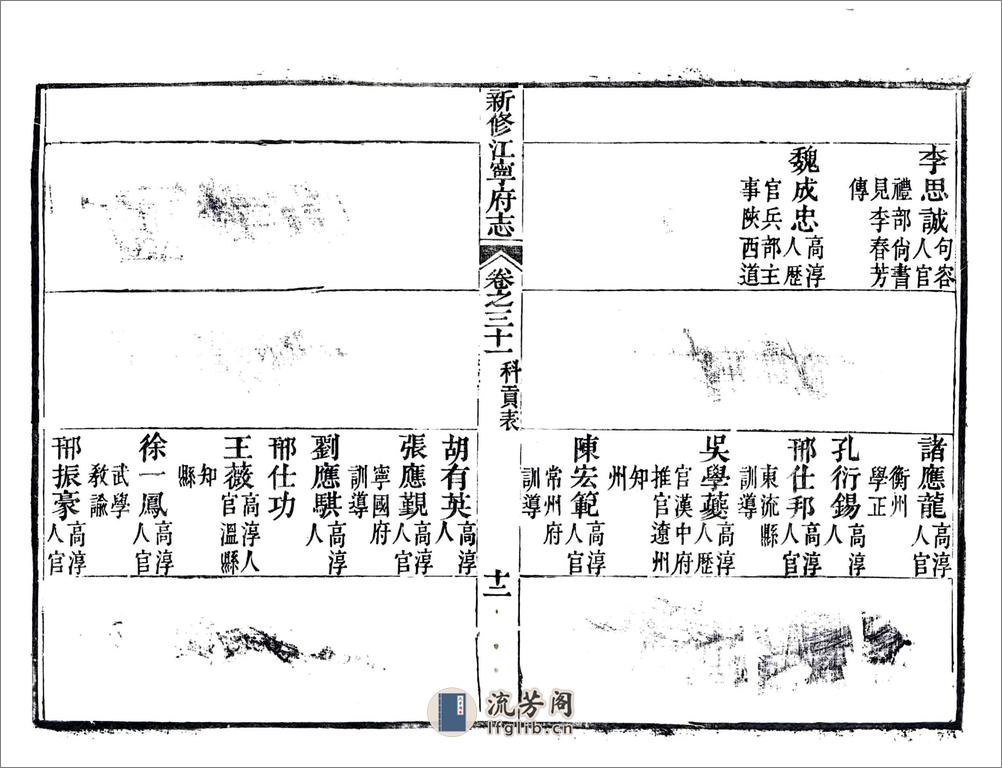 李思誠句容人官
禮部尙書見李春芳
傳
魏成忠高淳人歷
官兵部主事陝西道
諸應龍高淳人官
衡州學正
孔衍錫高淳人
邢仕邦高淳人官
東流縣訓導
吳學夔高淳人歷
官漢中府推官遼州
知州
陳宏範高淳人官
常州府訓導
新修江寧府志
卷之三十一
科貢表
十二
胡有英高淳人
張應覲高淳人官
寧國府訓導
劉應騏高淳人
邢仕功
王薇高淳人官溫縣
知縣
徐一鳳高淳人官
武學教諭
邢振豪高淳人官
流芳阁
lfglib.cn